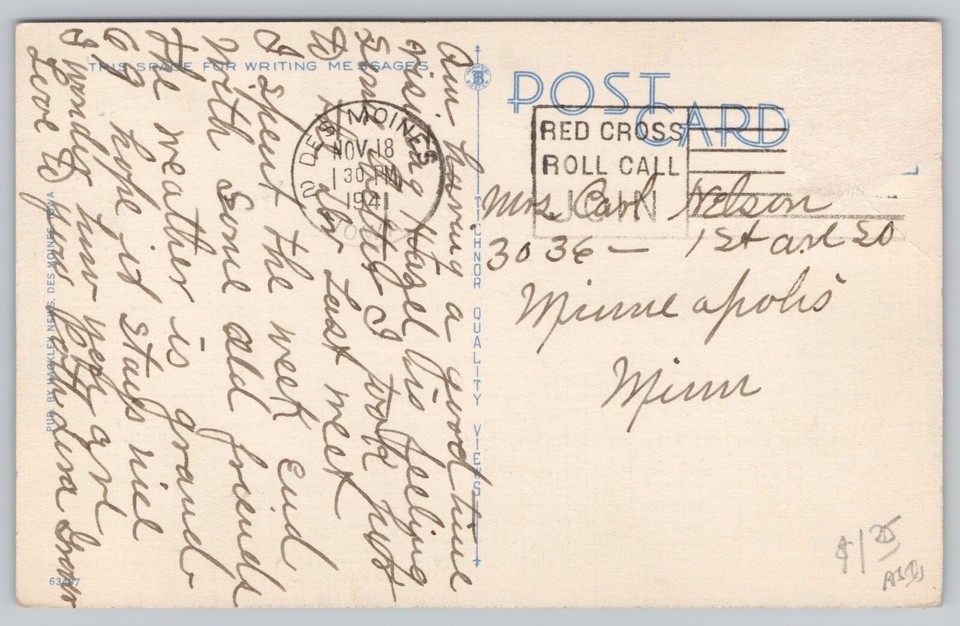 THIS SPACE FOR WRITING MESSAGES
Am having a good time
visiting Hazel. Jis feeling
some better I took her
to last week
I spent the week end
with some old friends
the weather is grand
hope it stays nice
I wonder how you are
Love to you both
PUB. BY HACKLEY NEWS, DES MOINES, IOWA
63447
DES MOINES
NOV 18
1 30 PM
1941
IOWA
2
TICHNOR QUALITY VIEWS
POST CARD
RED CROSS
ROLL CALL
JOIN
Mrs. Carl Nelson
3036 — 1st ave So
Minneapolis
Minn